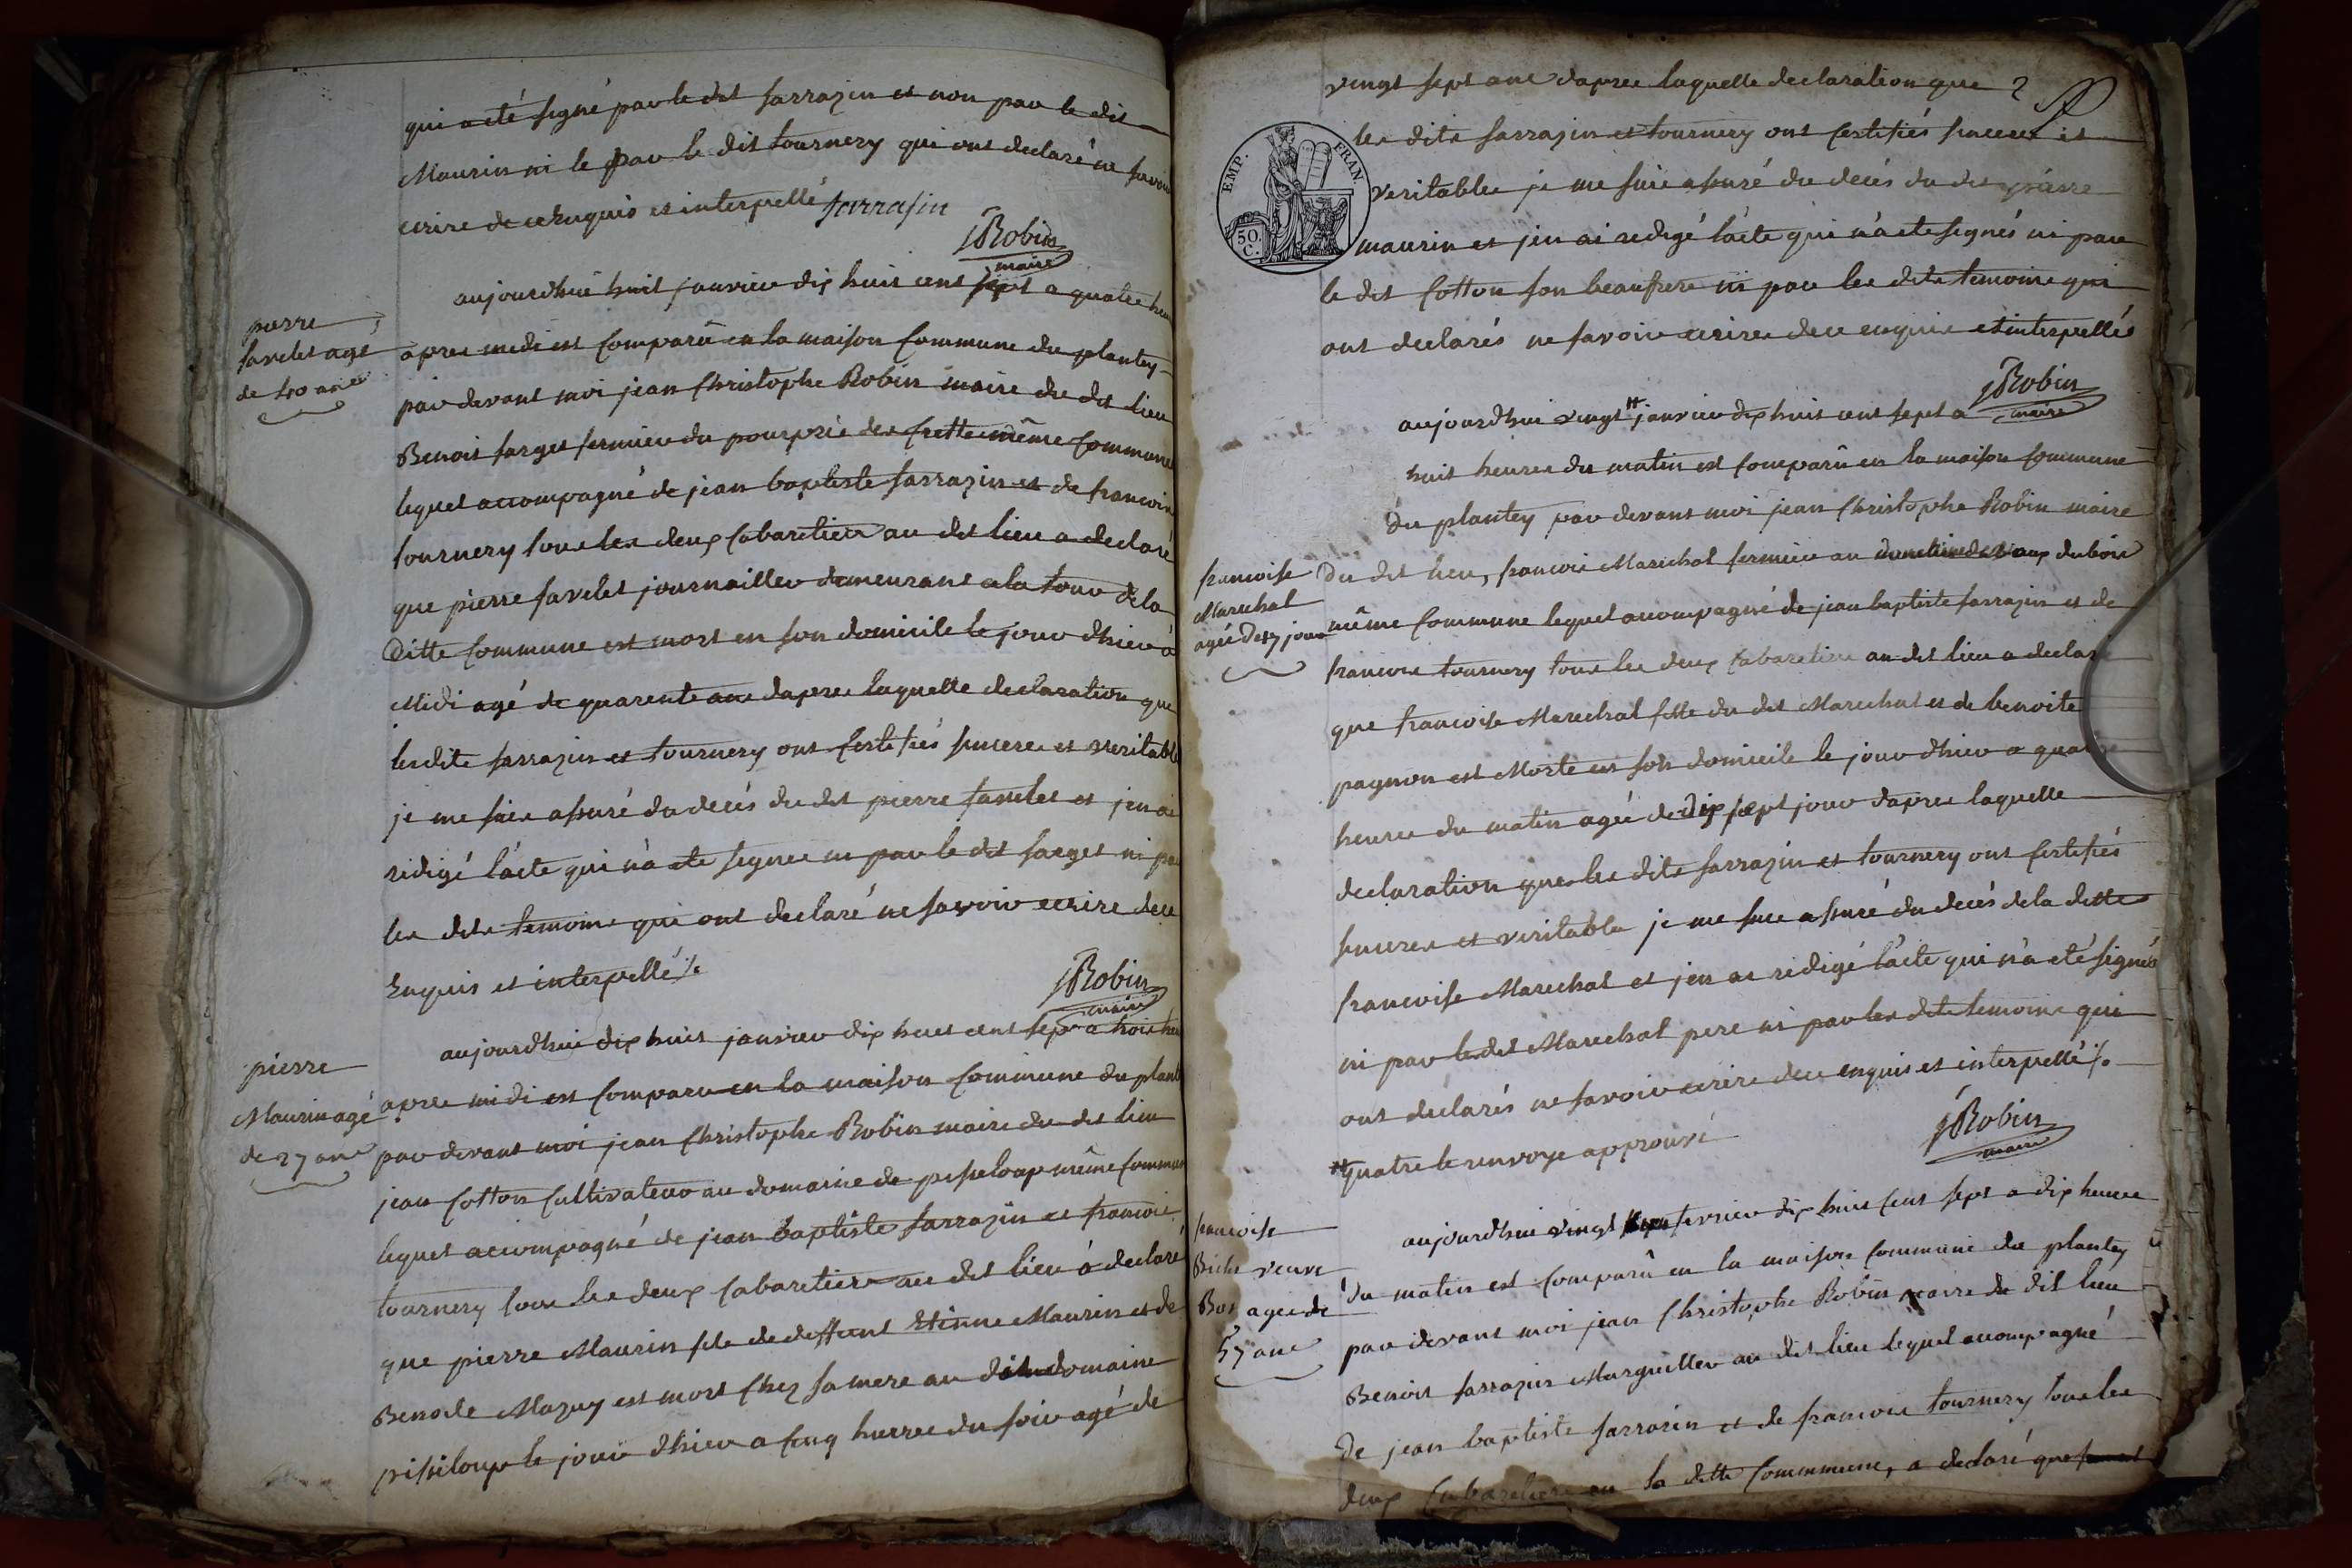 qui a eté signé par le dit sarrazin et non par le dit
Maurin ni le par le dit tournery qui ont declaré ne savoir
ecrire de ce Enquis et interpellé sarrasin
JRobin
maire
aujourdhui huit janvier dix huit cent sept a quatre heur
pierre
favelet age
de 40 ans
apres midi est Comparû en la maison Commune du plantey
par devant moi jean Christophe Robin maire du dit lieu
Benoit farges fermier du pourprie des frettes même Commune
lequel accompagné de jean baptiste sarrazin et de francois
tournery tous les deux Cabaretiers au dit lieu a declaré
que pierre favelet journaillier demeurant a la tour de la
Ditte Commune est mort en son domicile le jour dhier a
Midi agé de quarente ans dapres laquelle declaration que
les dits sarrazin et tournery ont Certifiés sincere et veritable
je me suis assuré du decés du dit pierre favelet et jen ai
redigé lácte qui n'a ete signee ni par le dit farges ni par
les dits temoins qui ont declaré ne savoir ecrire de ce
Enquis et interpellé ./.
JRobin
maire
aujourdhui dix huit janvier dix huit cent sept a trois heu
pierre
Maurin agé
de 27 ans
apres midi est Comparu en la maison Commune du plant
par devant moi jean Christophe Robin maire du dit lieu
jean Cotton Cultivateur au domaine de pisseloup même Commun
lequel accompagné de jean baptiste sarrazin et francois
tournery tous les deux Cabaretiers au dit lieu a declaré
que pierre Maurin fils de deffunt Etienne Maurin et de
Benoite Mazuy est mort Chez sa mere au dit domaine
pisseloup le jour dhier a Cinq heures du soir agé de
vingt sept ans dapres laquelle declaration que
les dits sarrazin et tournery ont Certifiés sincere et
EMP. FRAN.
50 C.
veritable je me suis assuré du decés du dit pierre
maurin et jen ai redigé lácte qui n'a ete signés ni par
le dit Cotton son beaufrere ni par les dits temoins qui
ont declarés ne savoir ecrire de ce enquis et interpellés
JRobin
maire
aujourdhui vingt # janvier dix huit cent sept a
huit heures du matin est Comparû en la maison Commune
du plantey par devant moi jean Christophe Robin maire
francoise
Marechal
agée de 17 jours
du dit lieu, francois Marechal fermier au du bois
même Commune lequel accompagné de jean baptiste sarrazin et de
francois tournery tous les deux Cabaretiers au dit lieu a declaré
que francoise Marechal fille du dit Marechal et de benoite
pagnon est Morte en son domicile le jour dhier a
heures du matin agée de dix sept jour dapres laquelle
declaration que les dits sarrazin et tournery ont Certifiés
sincere et veritable je me suis assuré du decés de la ditte
francoise Marechal et jen ai redigé lácte qui n'a eté signés
ni par le dit Marechal pere ni par les dits temoins qui
ont declarés ne savoir ecrire de ce enquis et interpellé ./.
# quatre le renvoye approuvé
JRobin
maire
aujourdhui vingt fevrier dix huit Cent sept a dix heures
francoise
Biche veuve
Bos agee de
57 ans
du matin est Comparû en la maison Commune du plantey
par devant moi jean Christophe Robin maire du dit lieu
Benoit sarrazin Marguillier au dit lieu lequel accompagné
de jean baptiste sarrasin et de francois tournery tous les
deux Cabaretiers en la ditte Commmune, a declaré que